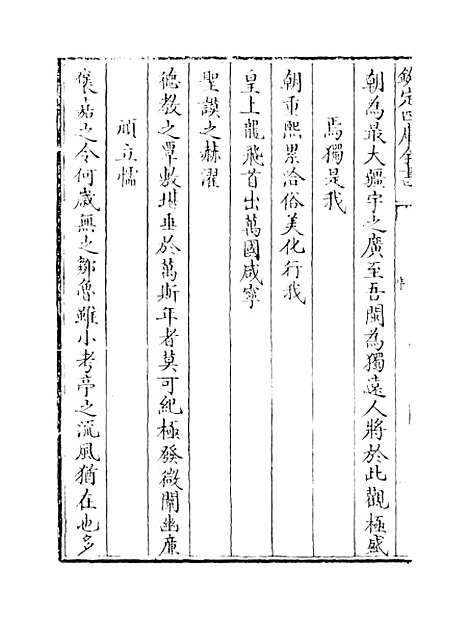 欽定四庫全書
朝為最大疆宇之廣至吾閩為獨遠人將於此觀極盛
焉獨是我
朝重熙累洽俗美化行我
皇上龍飛首出萬國咸寧
聖謨之赫濯
德教之覃敷垂於萬斯年者莫可紀極發微闡幽廉
頑立懦
褒姞之令何歲無之鄒魯雖小考亭之流風猶在也多